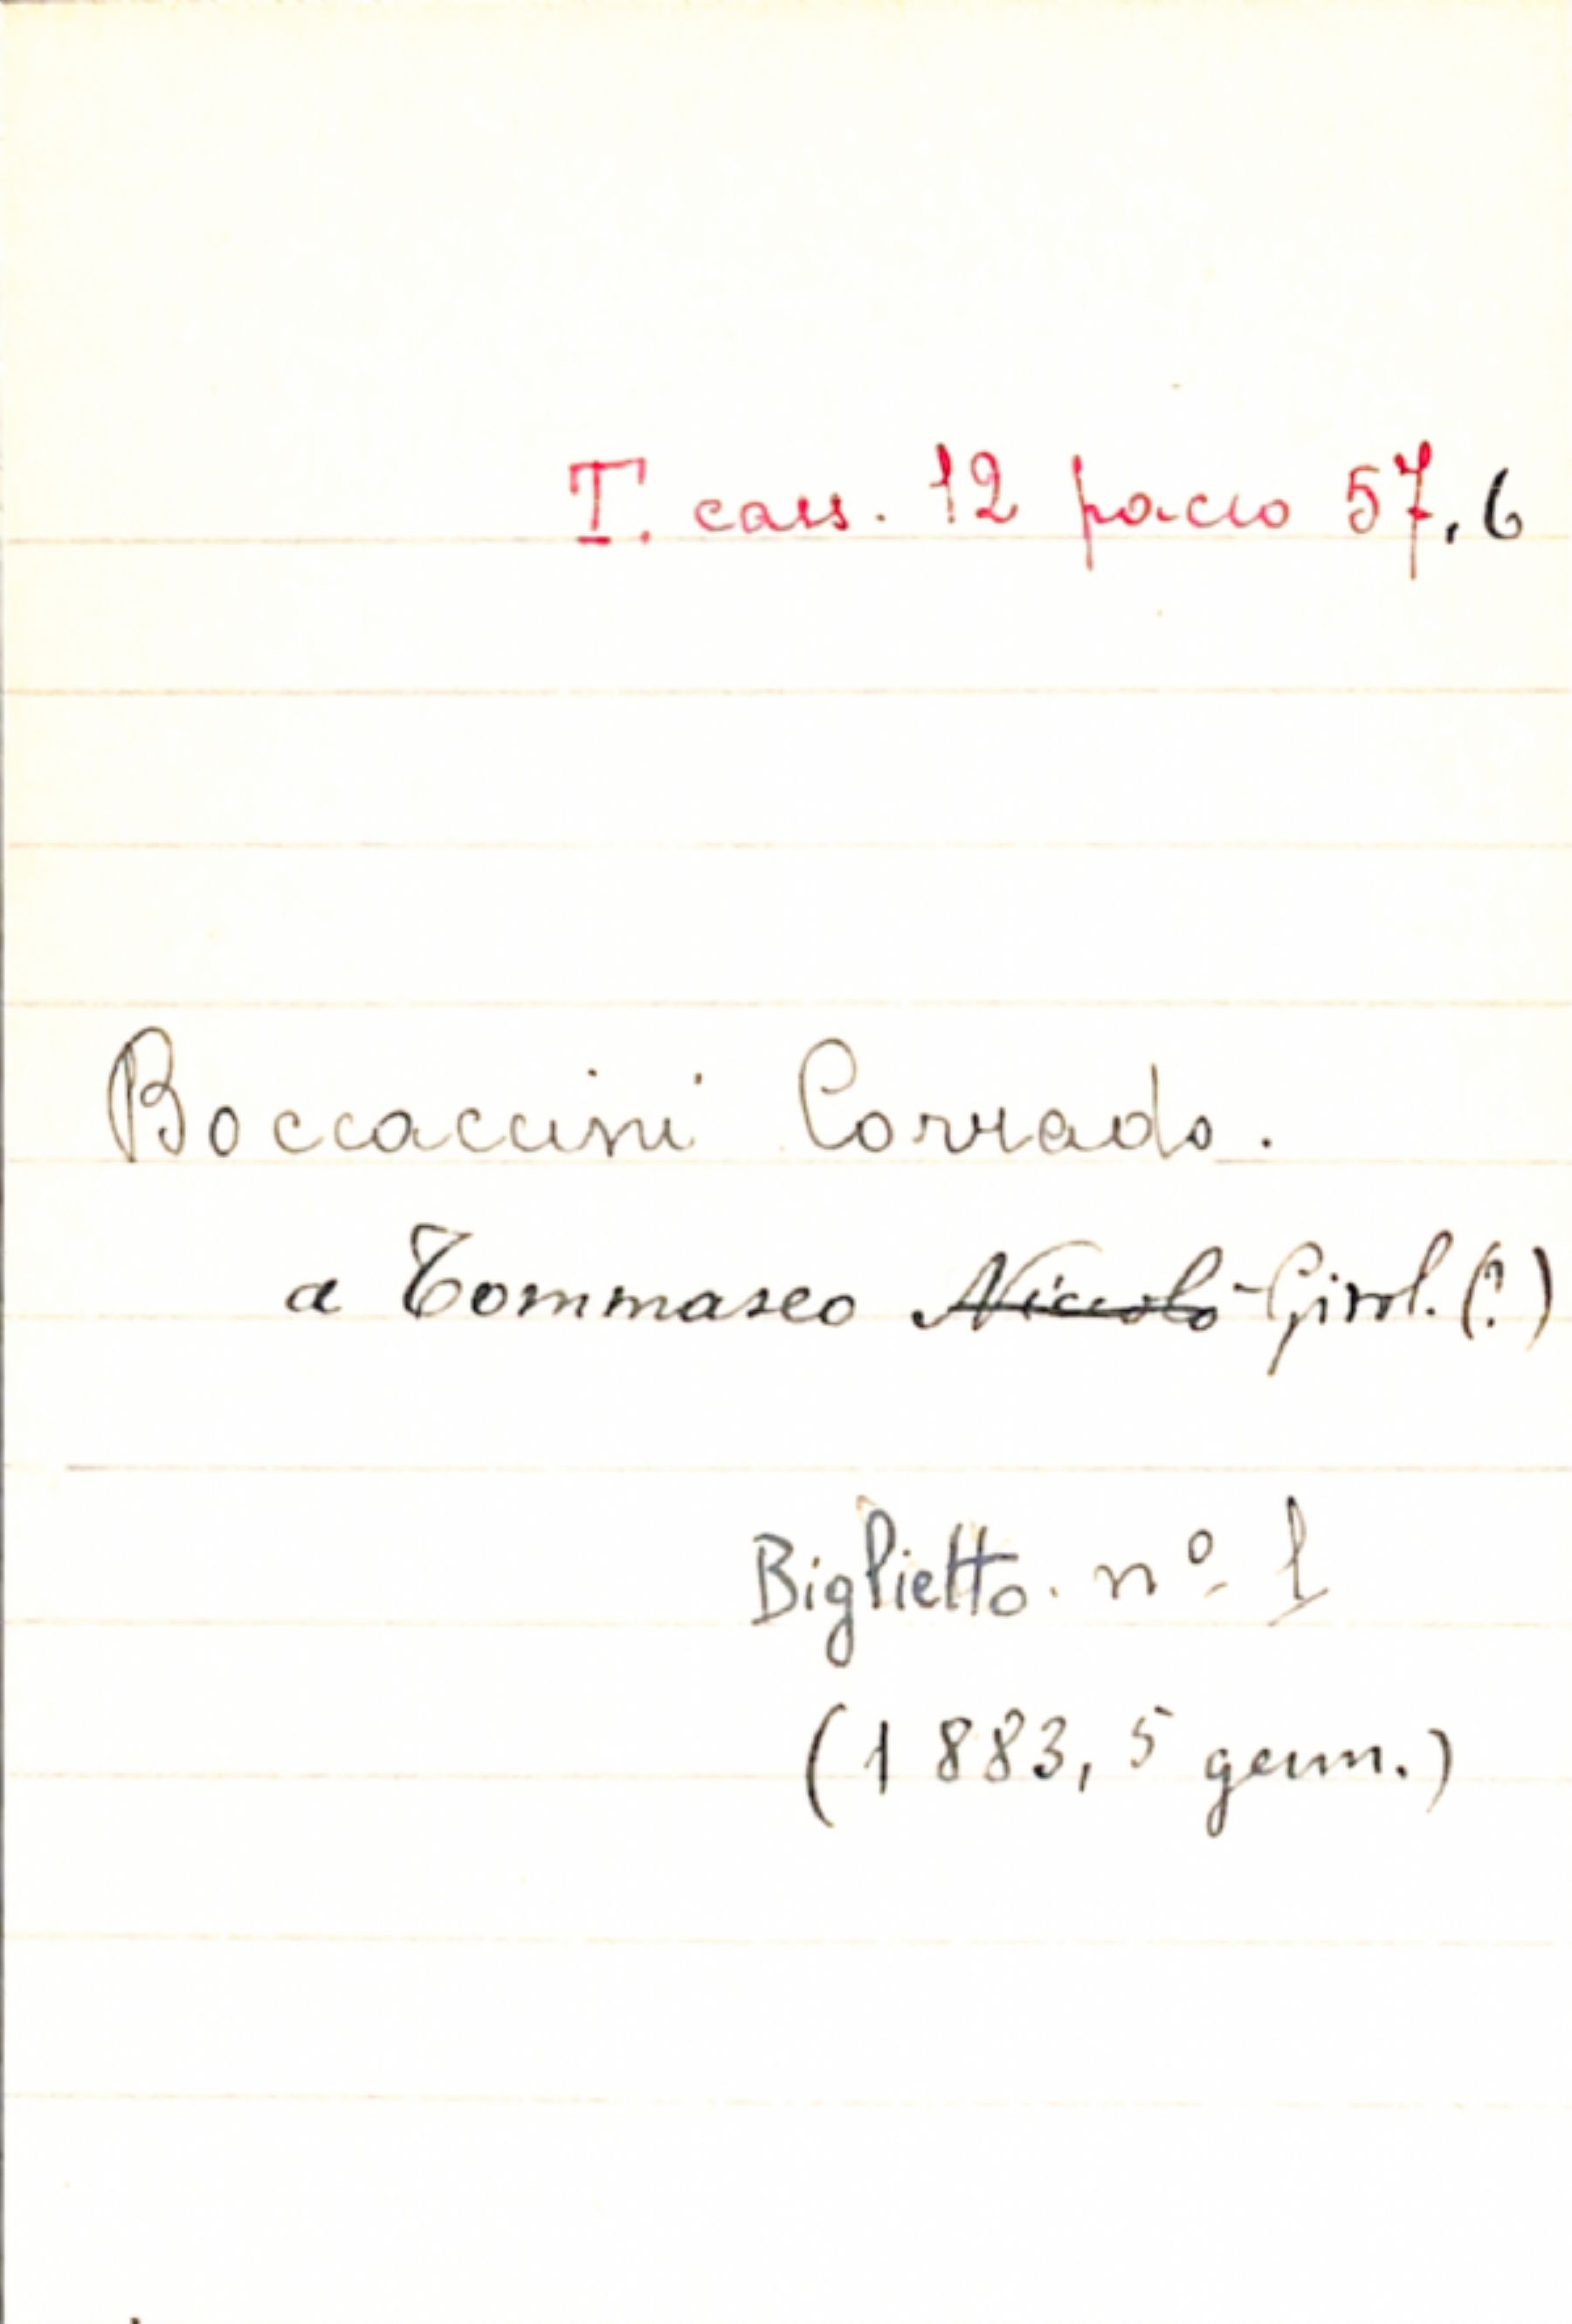 T. cass. 12 pacco 57,6
Boccaccini Corrado.
a Tommaseo Niccolò Girol. (?)
Biglietto. nº 1
(1883, 5 genn.)